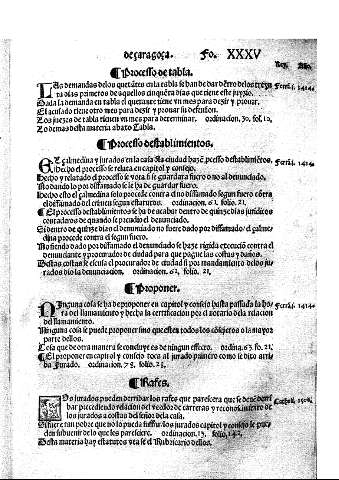 de çaragoça. Fo. XXXV
Rey. Año.
¶ Processo de tabla.
LAs demandas delos que entre en la tabla se han de dar dẽtro delos treyn Ferrã. 1414.
ta dias primeros de aquellos cinquẽta dias que tiene este juyzio.
Dada la demanda en tabla el que tiene vn mes para dezir y prouar.
El acusado tiene otro mes para dezir y prouar su defension.
Los juezes de tabla tienen vn mes para determinar. ordinacion. 30. fol. 10.
Lo demas desta materia abaxo Tabla.
¶ Processo destablimientos.
EL çalmedina y jurados en la casa d̃la ciudad hazẽ processo destablimiẽtos. Ferrã. 1414.
Hecho el processo se relata en capitol y consejo.
Hecho y relatado el processo se vota si se guardara fuero o no al denunciado.
No dando lo por diffamado se ha de guardar fuero.
Hecho esto el çalmedina solo procede contra el no diffamado segun fuero cõtra
el diffamado el crimen segun estatutos. ordinacion. 61. folio. 21.
¶ El processo destablimientos se ha de acabar dentro de quinze dias juridicos
contaderos de quando se prendio el denunciado.
Si dentro de quinze dias el denunciado no fuere dado por diffamado el çalmedina
procede contra el segun fuero.
No siendo dado por diffamado el denunciado se haze rigida execuciõ contra el
denunciante y procurador de ciudad para que pague las costas y daños.
Destas costas se escusa el procurador de ciudad si por mandamiento delos jurados
dio la denunciacion. ordinacion. 62. folio. 21.
¶ Proponer.
NInguna cosa se ha de proponer en capitol y consejo hasta passada la hora Ferrã. 1414.
del llamamiento y hecha la certificacion por el notario dela relacion
del llamamiento.
Ninguna cosa se puede proponer sino que esten todos los cõsejeros o la mayor
parte dellos.
Cosa que de otra manera se concluye es de ningun effecto. ordina. 63. fo. 21.
¶ El proponer en capitol y consejo toca al jurado primero como se dize arriba
Jurado. ordinacion. 78. folio. 25.
¶ Rafes.
LOs jurados pueden derribar los rafes que pareciere que se deuẽ derribar Cathol. 1506.
precediendo relacion del veedor de carreras y reconoscimiento delos
jurados a costas del señor dela casa.
Si fuere tan pobre que no lo pueda suffrir los jurados capitol y consejo se pueden
subuenir de lo que les paresciere. ordinacion. 13. folio. 142.
Desta materia hay estatutos vea se el Rubricario dellos.